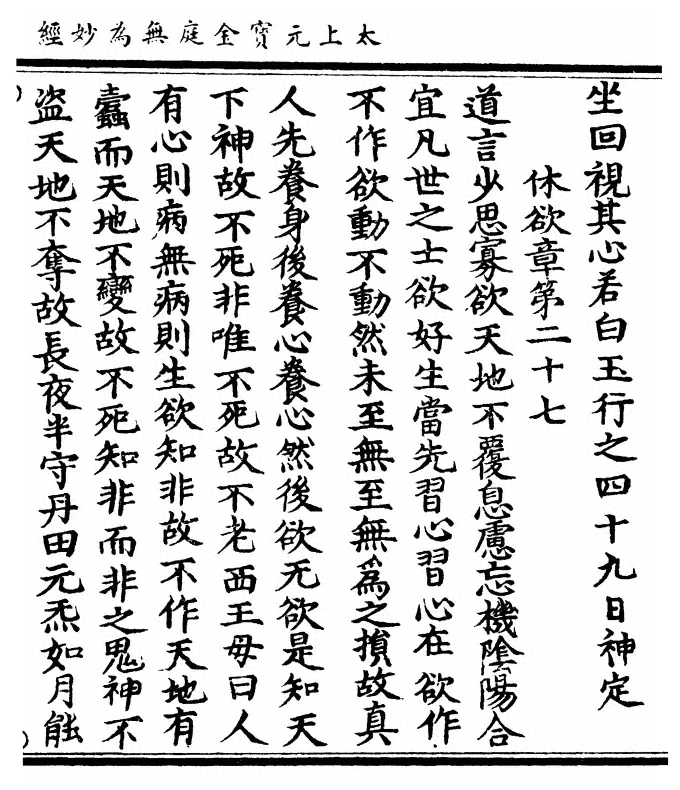 太上元寶金庭無為妙經
坐回視其心若白玉行之四十九日神定
休欲章第二十七
道言少思寡欲天地不覆息慮忘機陰陽合
宜凡世之士欲好生當先習心習心在欲作
不作欲動不動然未至無至無為之損故真
人先養身後養心養心然後欲无欲是知天
下神故不死非唯不死故不老西王母曰人
有心則病無病則生欲知非故不作天地有
蠹而天地不變故不死知非而非之鬼神不
盜天地不奪故長夜半守丹田元炁如月能